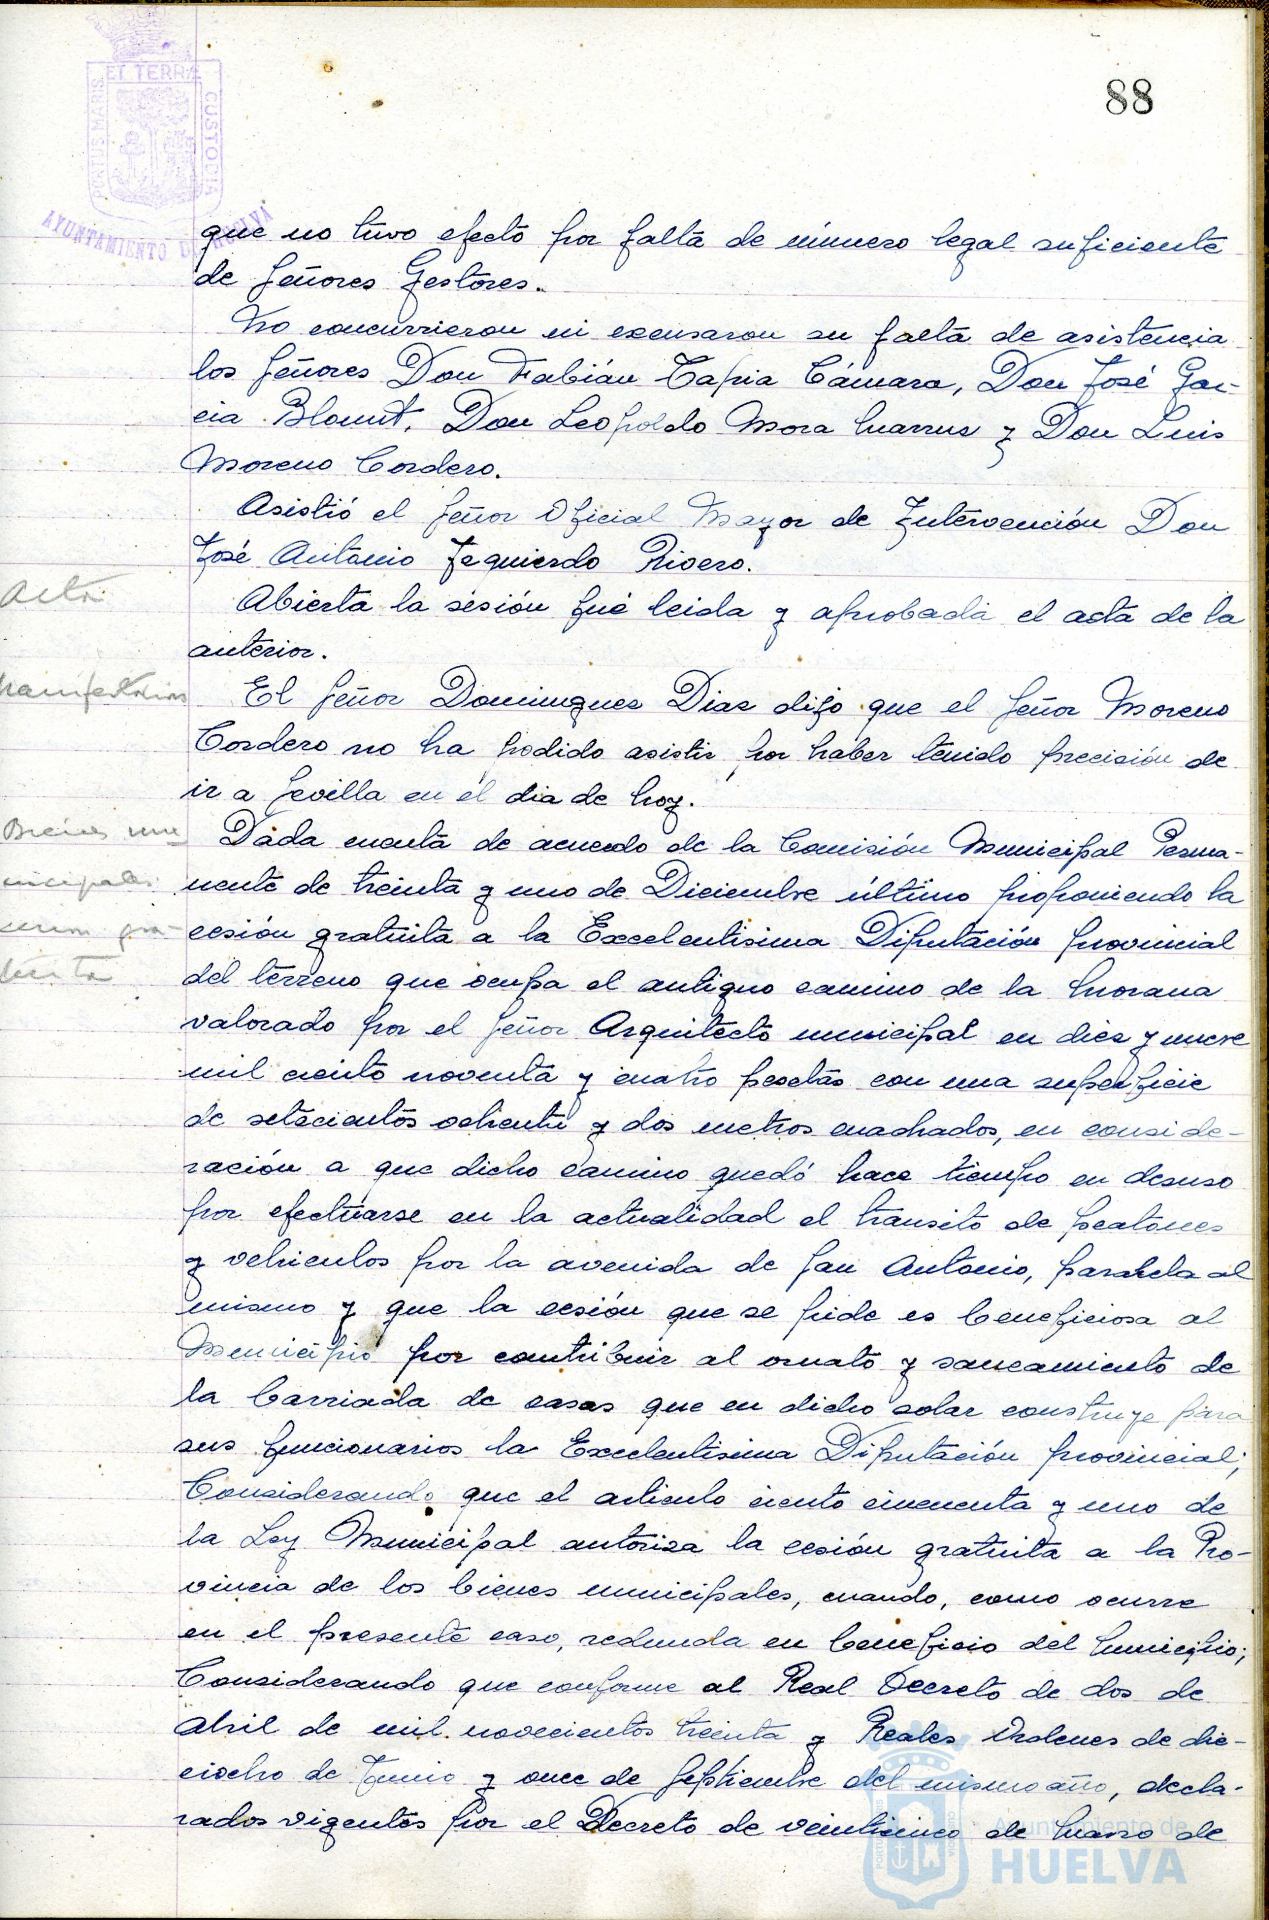 88
PORTUS MARIS ET TERRÆ CUSTODIA
AYUNTAMIENTO DE HUELVA
que no tuvo efecto por falta de número legal suficiente
de Señores Gestores.
No concurrieron ni excusaron su falta de asistencia
los Señores Don Fabián Tapia Cámara, Don José Gar-
cia Blount, Don Leopoldo Mora y Don Luis
Moreno Cordero.
Asistió el Señor Oficial Mayor de Intervención Don
José Antonio Izquierdo Rivero.
Acta
Abierta la sesión fué leida y aprobada el acta de la
anterior.
El Señor Dominguez Diaz dijo que el Señor Moreno
Cordero no ha podido asistir por haber tenido precisión de
ir a Sevilla en el dia de hoy.
Bienes mu
nicipales
cesion gra-
tuita
Dada cuenta de acuerdo de la Comisión Municipal Perma-
nente de treinta y uno de Diciembre último proponiendo la
cesión gratuita a la Excelentisima Diputación provincial
del terreno que ocupa el antiguo camino de la Morana
valorado por el Señor Arquitecto municipal en diez y nueve
mil ciento noventa y cuatro pesetas con una superficie
de setecientos ochenta y dos metros cuadrados, en conside-
ración a que dicho camino quedó hace tiempo en desuso
por efectuarse en la actualidad el transito de peatones
y vehiculos por la avenida de San Antonio, paralela al
mismo y que la cesión que se pide es beneficiosa al
Municipio por contribuir al ornato y saneamiento de
la barriada de casas que en dicho solar construye para
sus funcionarios la Excelentisima Diputación provincial;
Considerando que el articulo ciento cincuenta y uno de
la Ley Municipal autoriza la cesión gratuita a la Pro-
vincia de los bienes municipales, cuando, como ocurre
en el presente caso, redunda en beneficio del Municipio;
Considerando que conforme al Real Decreto de dos de
abril de mil novecientos treinta y Reales Ordenes de die-
ciocho de Junio y once de Septiembre del mismo año, decla-
rados vigentes por el Decreto de veinticinco de Marzo de
Ayuntamiento de
HUELVA